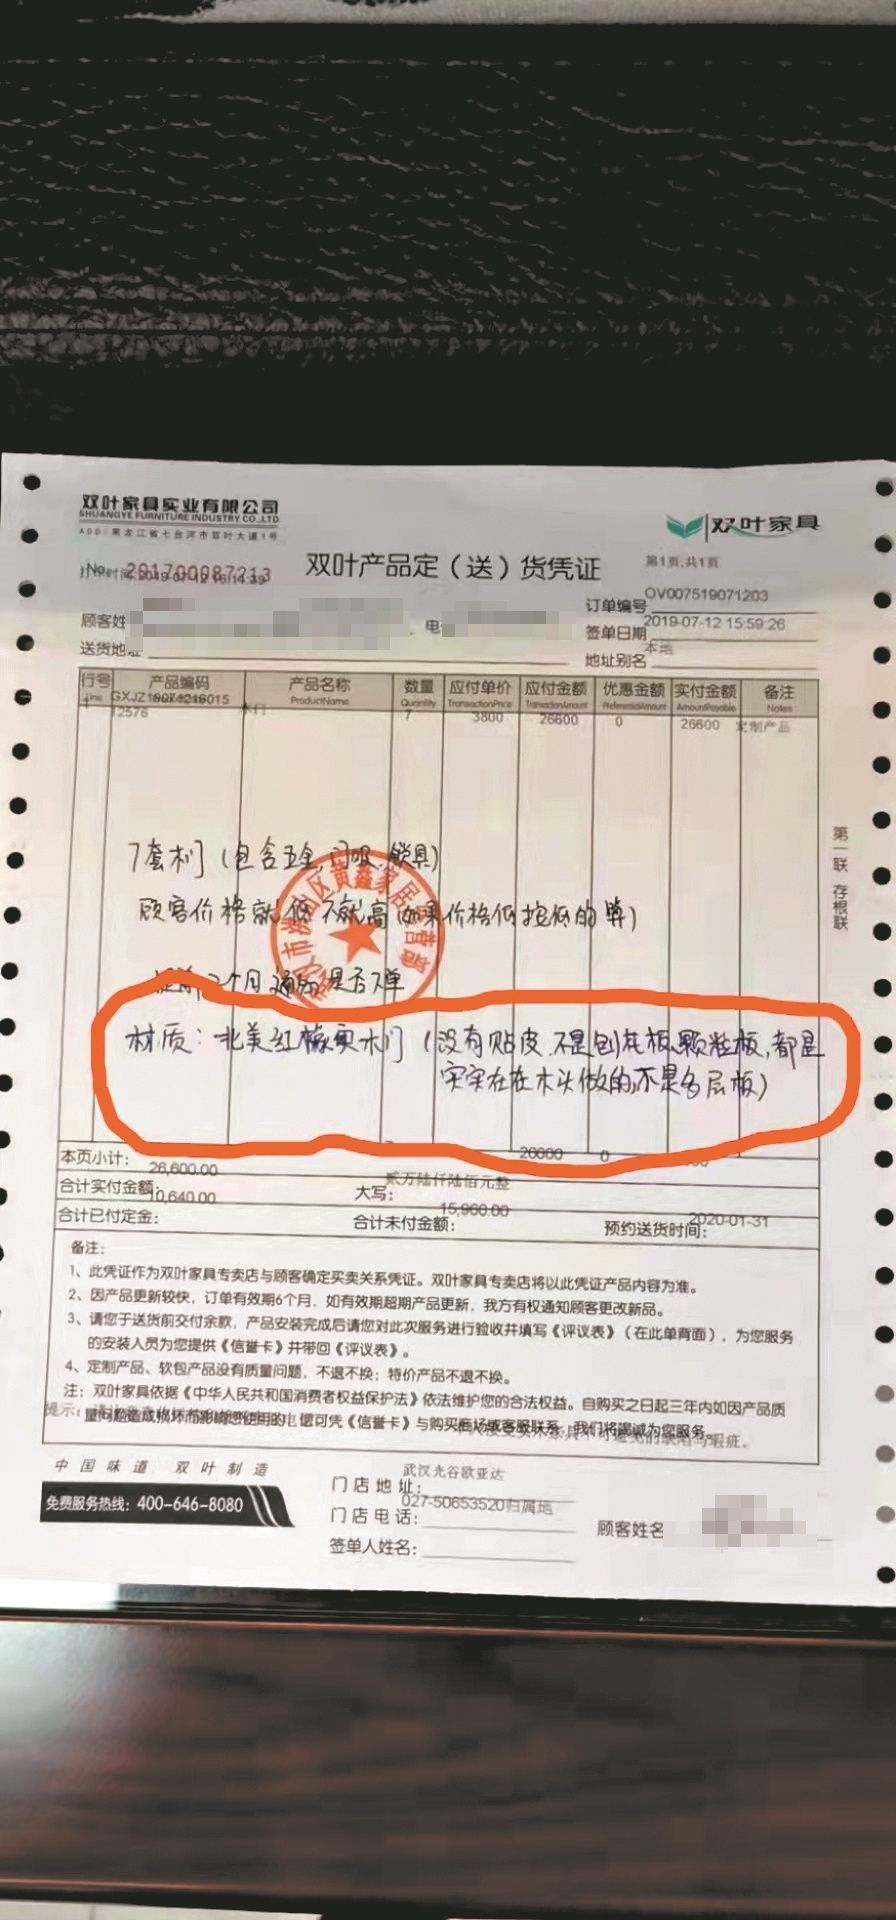 双叶家具实业有限公司
SHUANGYE FURNITURE INDUSTRY CO.,LTD
ADD:黑龙江省七台河市双叶大道1号
双叶家具
No. 201700087213
双叶产品定(送)货凭证
第1页,共1页
顾客姓
电
订单编号 OV007519071203
签单日期 2019-07-12 15:59:26
送货地址
地址别名 本地
行号 产品编码 产品名称 数量 应付单价 应付金额 优惠金额 实付金额 备注
Line ProductName Quantity TransactionPrice TransactionAmount PreferentialAmount AmountPayable Notes
12576 木门 7 3800 26600 0 26600 定制产品
第一联 存根联
7套木门(包含五金,门吸.锁具)
顾客价格就低不就高(如果价格低按低的算)
提前 个月通知是否下单
材质:北美红橡实木门(没有贴皮.不是刨花板.颗粒板,都是
实实在在木头做的,不是多层板)
20000 0
本页小计: 26,600.00
贰万陆仟陆佰元整
合计实付金额: 10,640.00 大写: 15,960.00
2020-01-31
合计已付定金: 合计未付金额: 预约送货时间:
备注:
1、此凭证作为双叶家具专卖店与顾客确定买卖关系凭证。双叶家具专卖店将以此凭证产品内容为准。
2、因产品更新较快,订单有效期6个月,如有效期超期产品更新,我方有权通知顾客更改新品。
3、请您于送货前交付余款,产品安装完成后请您对此次服务进行验收并填写《评议表》(在此单背面),为您服务
的安装人员为您提供《信誉卡》并带回《评议表》。
4、定制产品、软包产品没有质量问题,不退不换;特价产品不退不换。
注:双叶家具依据《中华人民共和国消费者权益保护法》依法维护您的合法权益。自购买之日起三年内如因产品质
量问题造成损坏而影响您使用的,您可凭《信誉卡》与购买商场或客服联系,我们将竭诚为您服务。
提示:
中国味道 双叶制造
免费服务热线:400-646-8080
门店地址: 武汉光谷欧亚达
门店电话: 027-50653520归属地
签单人姓名:
顾客姓名